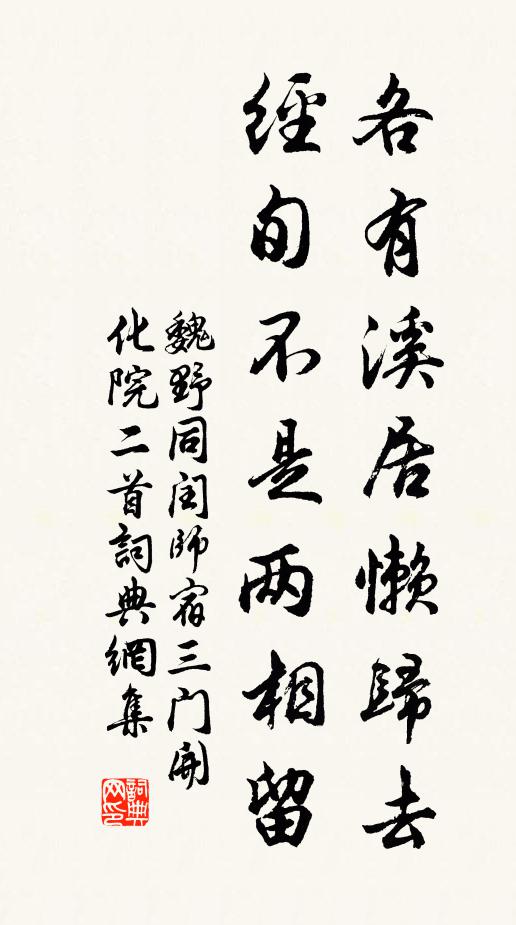 各有溪居懒歸去
經旬不是两相留
魏野同闰師宿三门開
化院二首詞典網集
詞典
网印